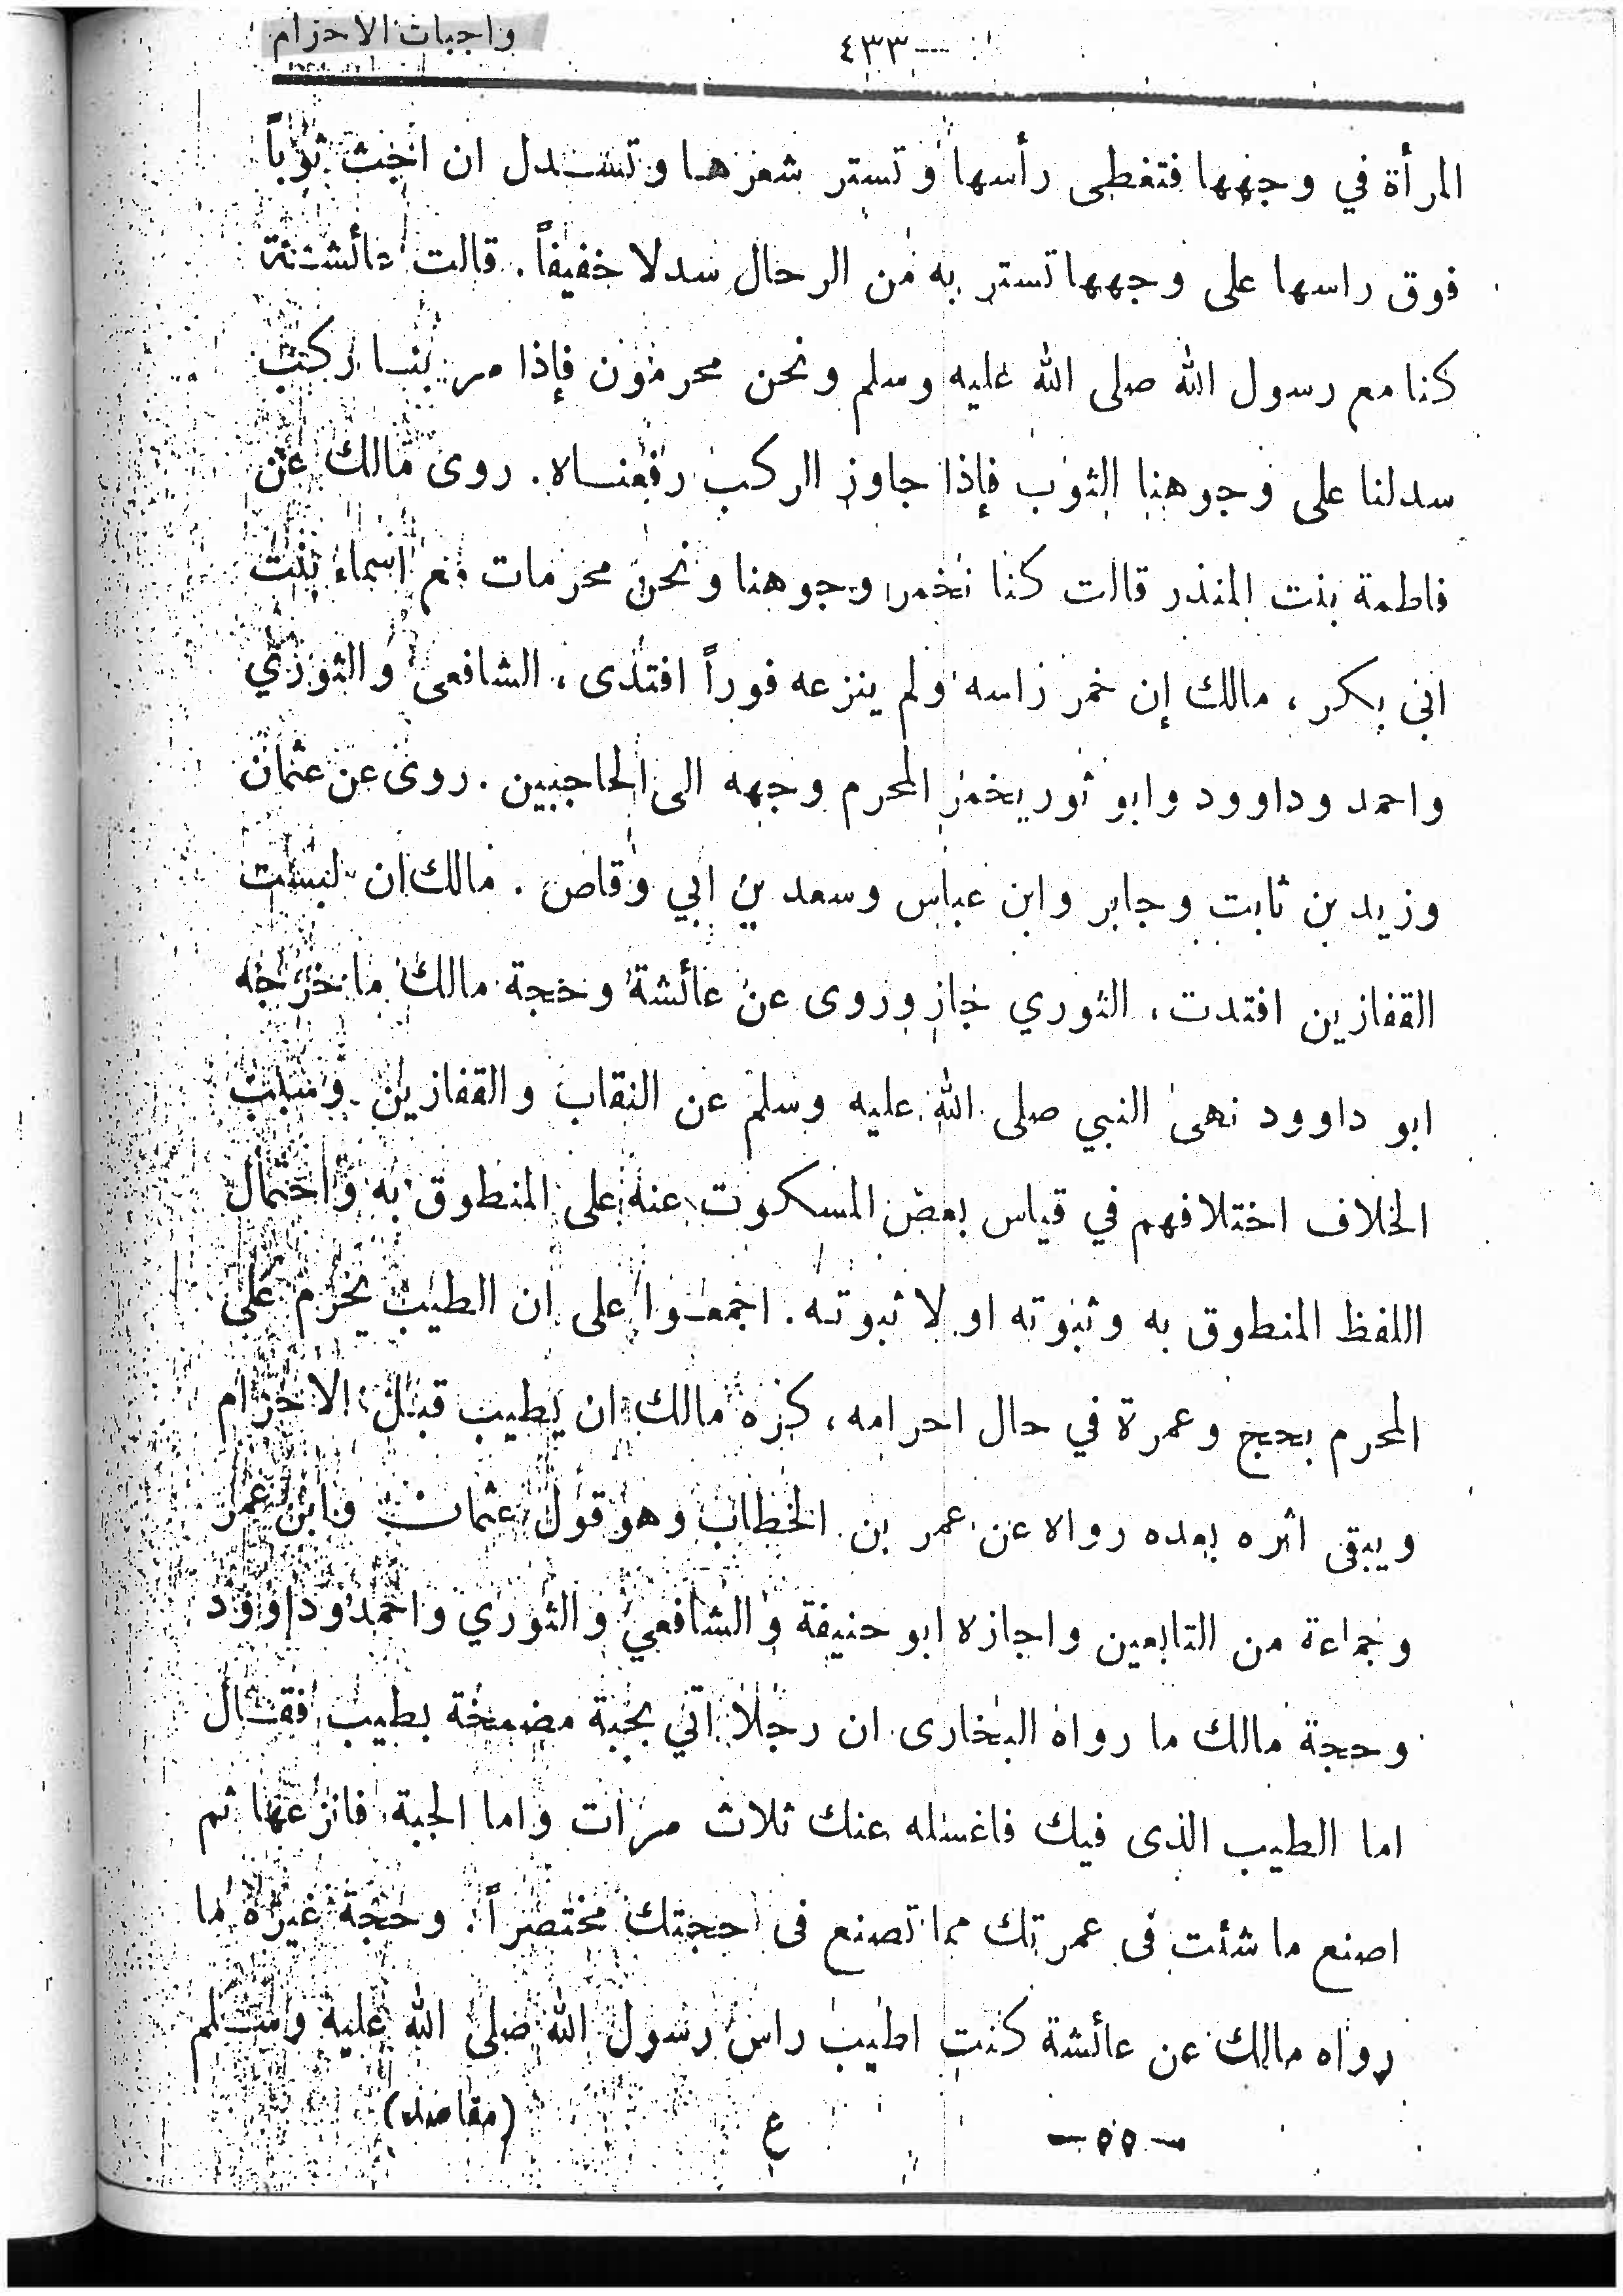 ٤٣٣ واجبات الاحرام
المرأة في وجهها فتغطى رأسها وتستر شعرها وتسدل ان احبت ثوباً
فوق راسها على وجهها تستر به من الرجال سدلا خفيفاً. قالت عائشة
كنا مع رسول الله صلى الله عليه وسلم ونحن محرمون فإذا مر بنا ركب
سدلنا على وجوهنا الثوب فإذا جاوز الركب رفعناه. روى مالك عن
فاطمة بنت المنذر قالت كنا نخمر وجوهنا ونحن محرمات مع اسماء بنت
ابى بكر، مالك إن خمر راسه ولم ينزعه فوراً افتدى، الشافعى والثوري
واحمد وداوود وابو ثور يخمر المحرم وجهه الى الحاجبين. روى عن عثمان
وزيد بن ثابت وجابر وابن عباس وسعد بن ابي وقاص. مالك ان لبست
القفازين افتدت، الثوري جاز وروى عن عائشة وحجة مالك ما خرجه
ابو داوود نهى النبي صلى الله عليه وسلم عن النقاب والقفازين وسبب
الخلاف اختلافهم في قياس بعض المسكوت عنه على المنطوق به واحتمال
اللفظ المنطوق به وثبوته او لا ثبوته. اجمعوا على ان الطيب يحرم على
المحرم بحج وعمرة في حال احرامه، كره مالك ان يطيب قبل الاحرام
ويبقى اثره بعده رواه عن عمر بن الخطاب وهو قول عثمان وابن عمر
وجماعة من التابعين واجازه ابو حنيفة والشافعي والثوري واحمد وداوود
وحجة مالك ما رواه البخارى ان رجلا اتي بجبة مضمخة بطيب فقال
اما الطيب الذى فيك فاغسله عنك ثلاث مرات واما الجبة فانزعها ثم
اصنع ما شئت فى عمرتك مما تصنع فى حجتك مختصراً. وحجة غيره ما
رواه مالك عن عائشة كنت اطيب راس رسول الله صلى الله عليه وسلم
— ٥٥ — ع (مقاصد)